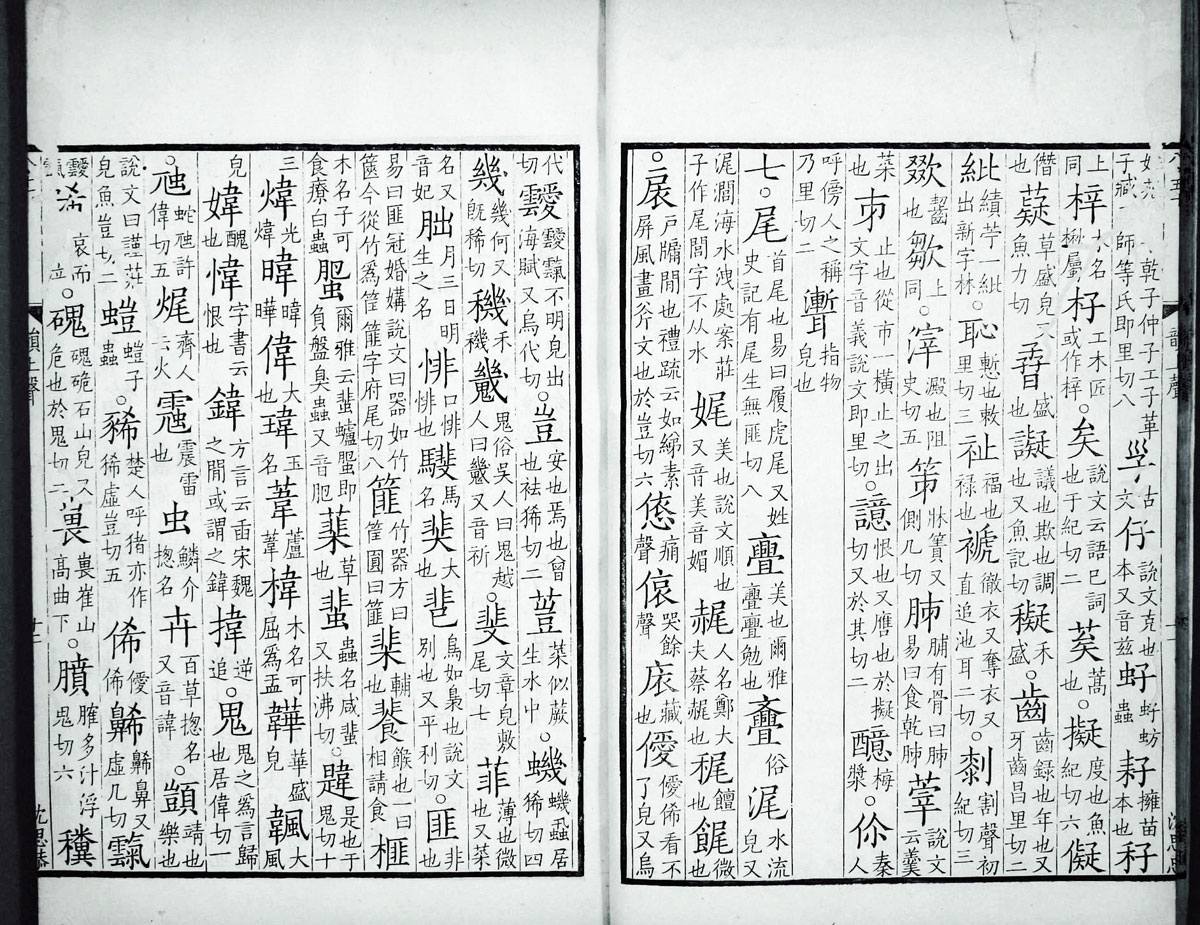 乾子仲子工子革師等氏即里切八 古文仔說文克也本又音兹虸虸蚄蟲耔擁苗本也秄
同上梓木名楸屬杍工木匠或作梓○矣說文云語已詞也于紀切二䒢蒿也○擬度也魚紀切六儗
僭也薿草盛皃又魚力切孴盛也譺議也欺也調也又魚記切䅲禾盛○齒齒録也年也又牙齒昌里切二
紪績苧一紪出新字林○恥慙也敕里切三祉福也禄也褫徹衣又奪衣又直追池耳二切○剺割聲初紀切三
欼齧也㰫上同○滓澱也阻史切五笫牀簀又側几切胏脯有骨曰胏易曰食乾胏䔂說文云羹
菜也巿止也從巿一橫止之出文字音義說文即里切○譩恨也又譍也於擬切又於其切二醷梅漿○伱秦人
呼傍人之稱乃里切二 指物皃也
七○尾首尾也易曰履虎尾又姓史記有尾生無匪切八亹美也爾雅亹亹勉也斖俗浘水流皃又
浘澗海水洩處案莊子作尾閭字不从水娓美也說文順也又音美音媚䞔人名鄭大夫蔡䞔也
○扆戶牖閒也禮疏云如綈素屏風畫斧文也於豈切六㥋痛聲偯哭餘聲㕈藏也僾僾俙看不了皃又烏
代切靉靉霼不明皃出海賦又烏代切○豈安也焉也曾也袪狶切二䔇菜似蕨生水中○蟣蟣蝨居狶切四
幾幾何又既稀切穖禾穖 鬼俗吳人曰鬼越人曰 又音祈○斐文章皃敷尾切七菲薄也微也又菜
名又音妃朏月三日明生之名悱口悱悱也 馬名奜大也 鳥如梟也說文別也又平利切○匪非也
易曰匪冠婚媾說文曰器如竹篋今從竹爲筐篚字府尾切八篚竹器方曰筐圓曰篚棐輔也餥餱也一曰相請食榧
木名子可食療白蟲蜰爾雅云蜚蠦蜰即負盤臭蟲又音肥 草也蜚蟲名咸蜚又扶沸切○韙是也于鬼切十
三煒光煒暐暐曄偉大也瑋玉名葦蘆葦椲木名可屈爲盂韡華盛皃颹大風
皃媁醜也愇字書云恨也鍏方言云臿宋魏之閒或謂之鍏 逆追○鬼鬼之爲言歸也居偉切一
○虺蛇虺許偉切五烠齊人云火 震雷也虫鱗介摠名卉百草摠名又音諱○顗靖也樂也
說文曰謹莊皃魚豈切二螘螘子蟲○豨楚人呼猪亦作狶虛豈切五俙僾俙 鼻又虛几切霼
靉霼唏哀而泣○磈磈硊石山皃又危也於鬼切二嵔嵔崔山高曲下○膹膗多汁浮鬼切六
韻上聲
十二
沈思恭